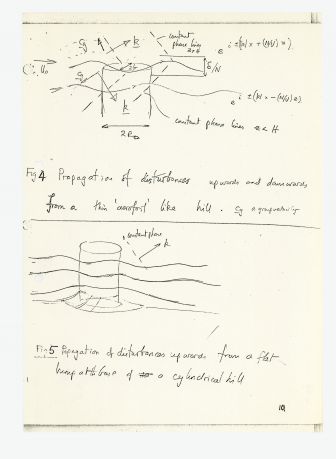 constant
phase lines
z > H
k
U₀
k
2R₀
constant phase lines z < H
Fig 4 Propagation of disturbances upwards and downwards
from a thin 'aerofoil' like hill. Cg ≡ group velocity
constant plane
k
Fig 5 Propagation of disturbances upwards from a flat
bump at the base of a cylindrical hill